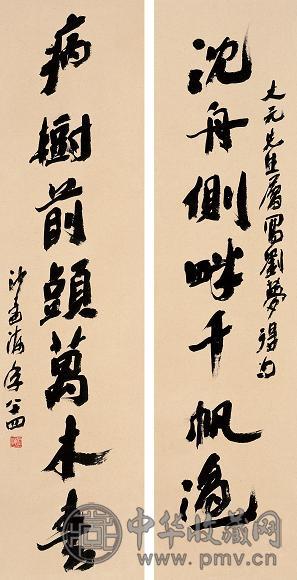 大元先生屬寫劉夢得句
沈舟側畔千帆過
病樹前頭萬木春
沙孟海年八四
中华收藏网
www.pmv.cn